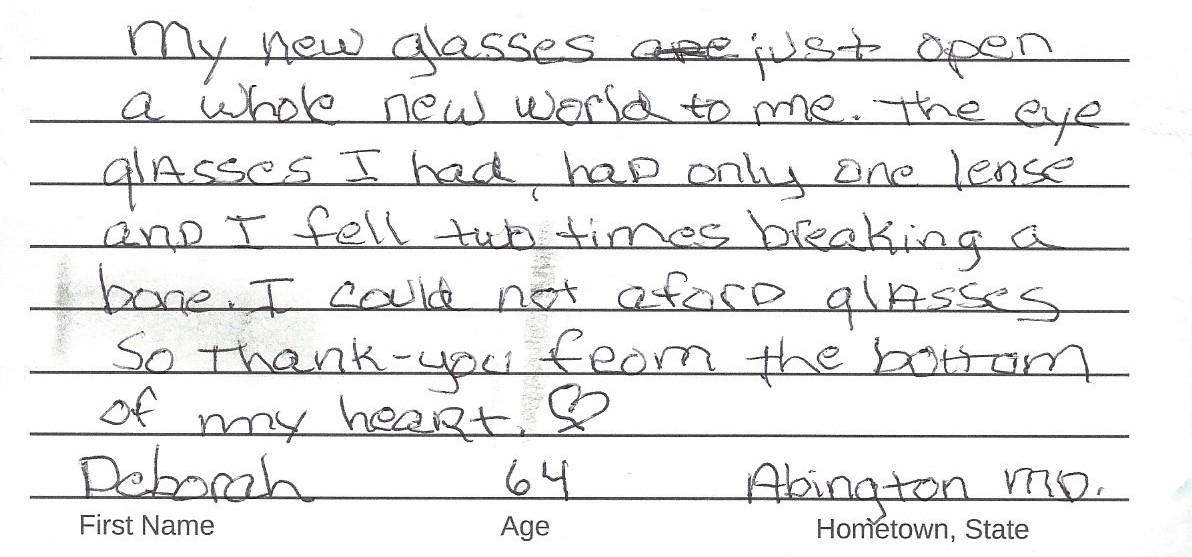 My new glasses are just open
a whole new world to me. The eye
glAsses I had, haD only one lense
anD I fell two times breaking a
bone. I could not aforD glAsses
So thank-you feom the bottom
of my heaRt. ♡
Deborah 64 Abington MD.
First Name Age Hometown, State